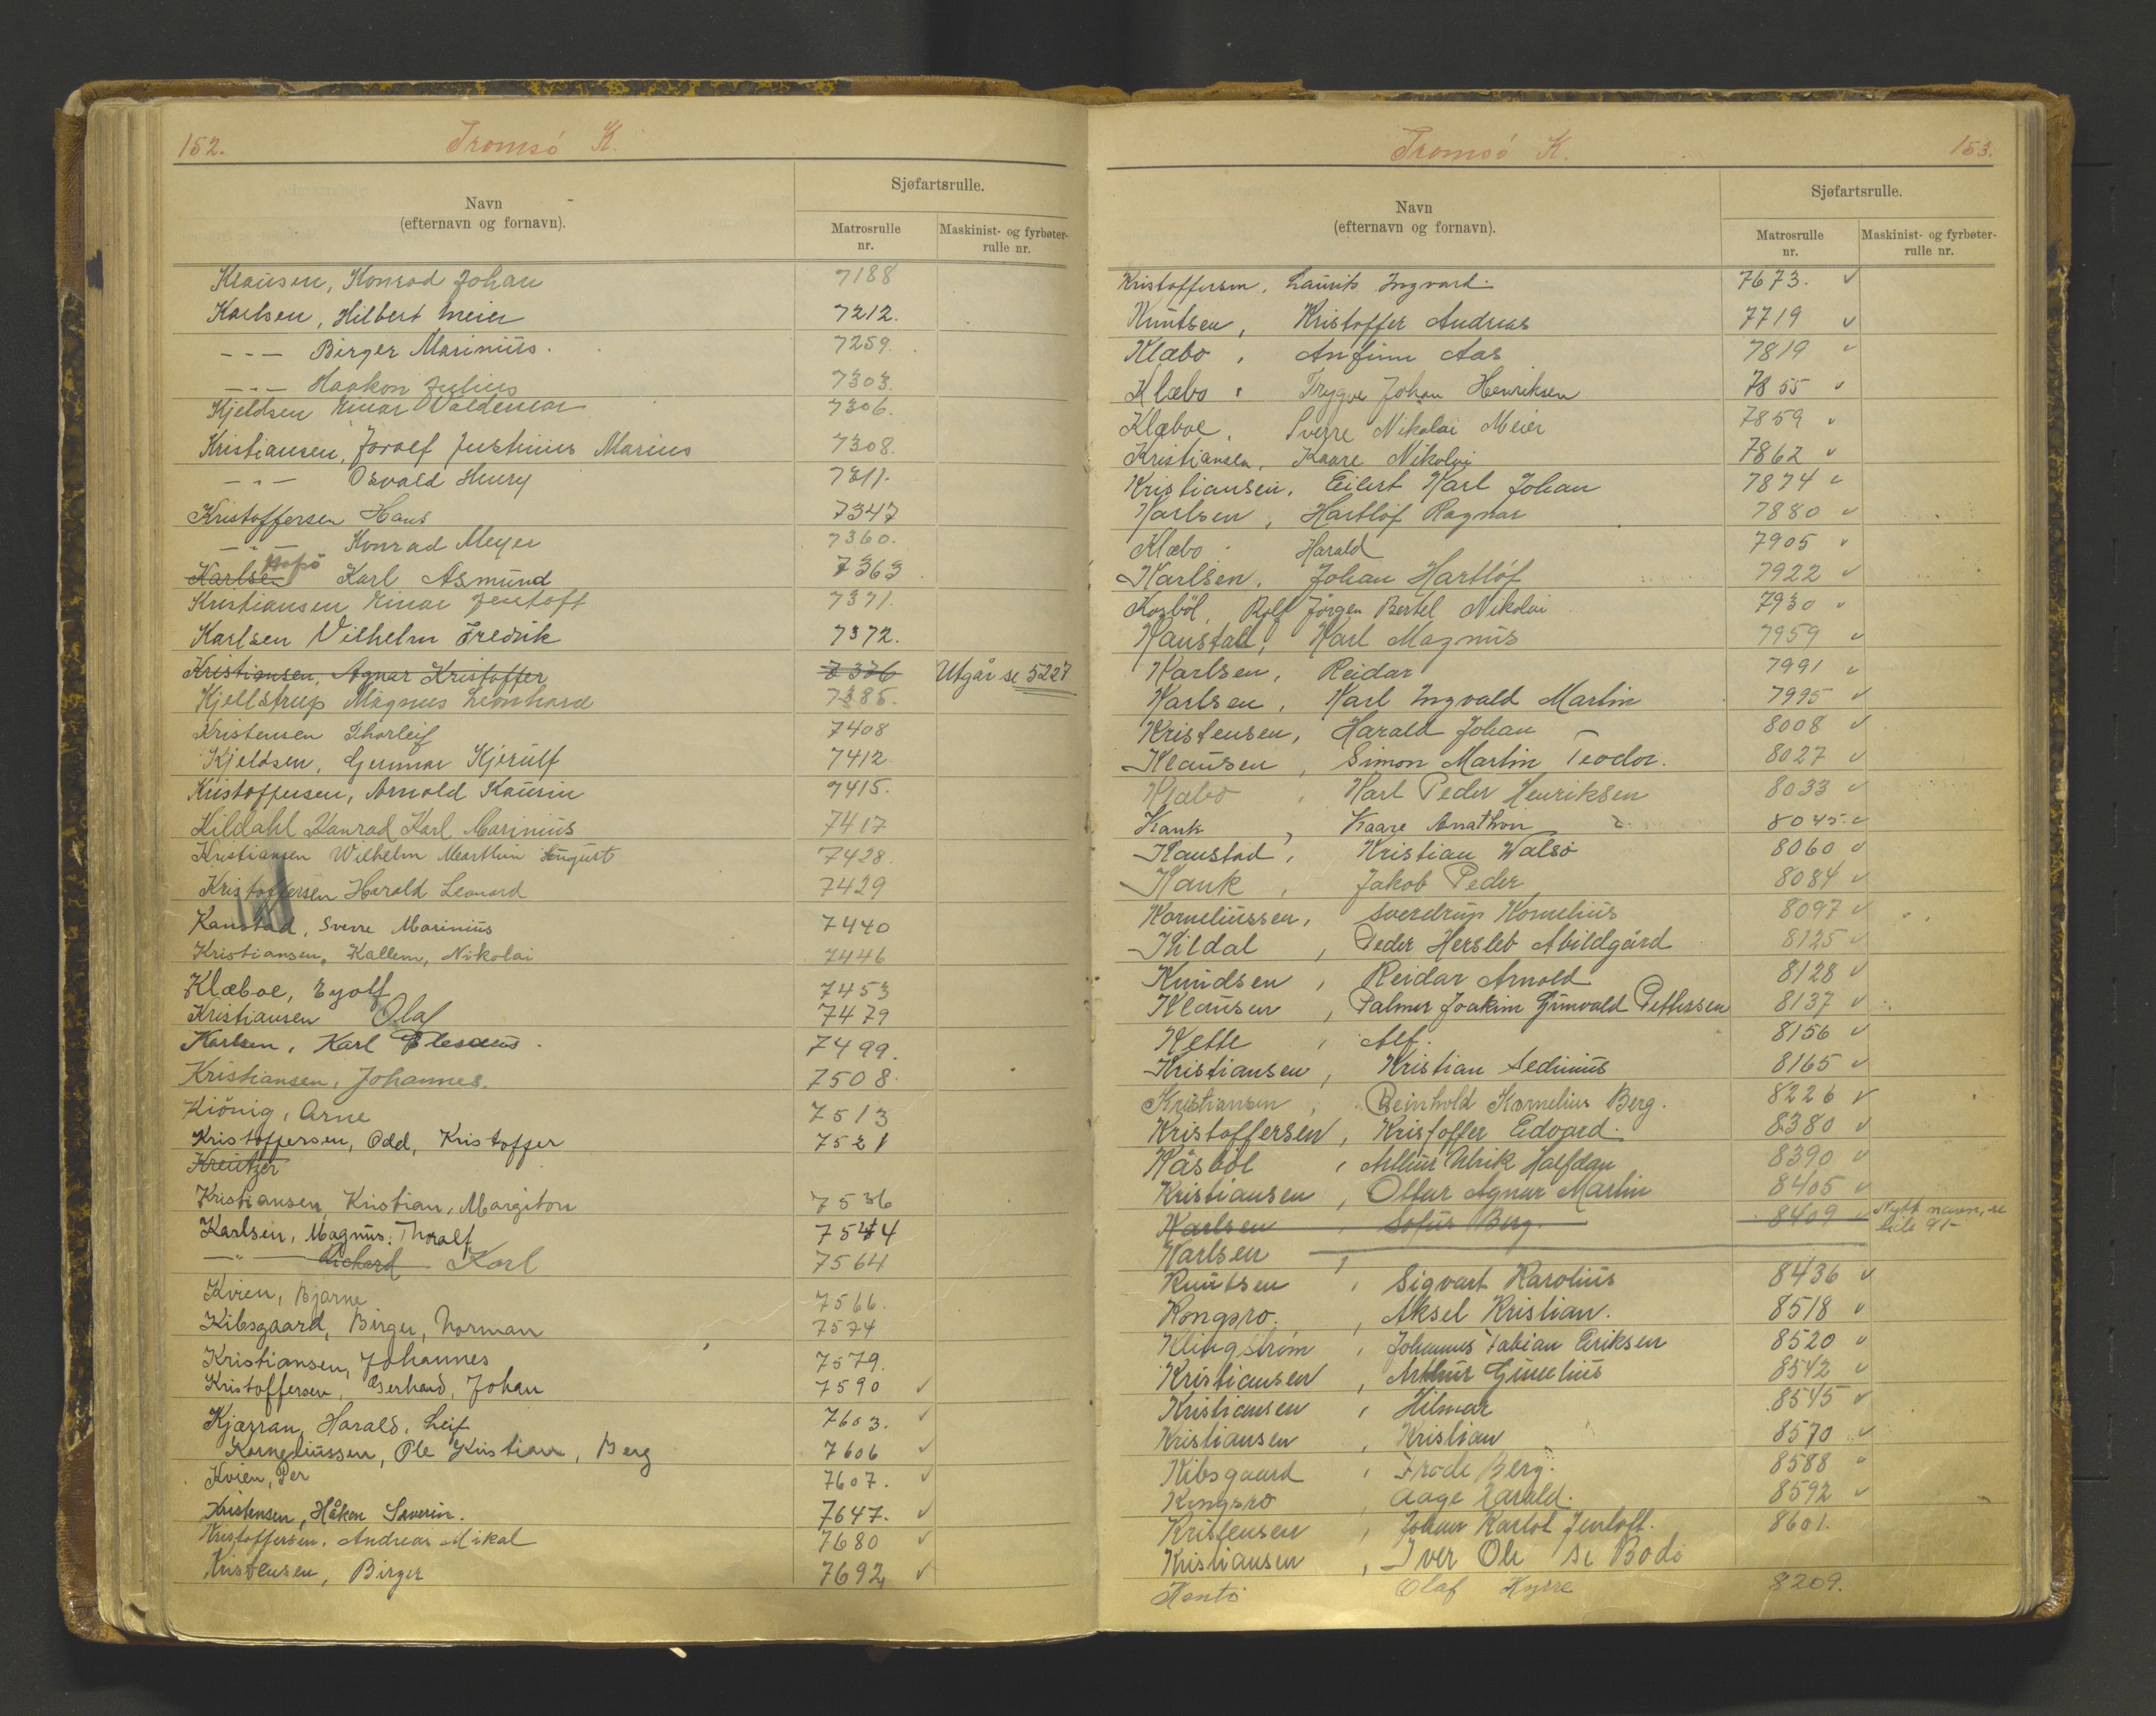 152.
Tromsø K.
Navn
(efternavn og fornavn).
Sjøfartsrulle.
Matrosrulle nr.
Maskinist- og fyrbøter-rulle nr.
Klausen, Konrad Johan 7188
Karlsen, Hilbert Meier 7212.
--- Birger Marinius. 7259.
--- Haakon Julius 7303.
Kjeldsen Einar Valdemar 7306.
Kristiansen, Joralf Justinus Marius 7308.
--- Osvald Henry 7311.
Kristoffersen Hans 7347
--- Konrad Meyer 7360.
Karlsen Karl Asmund 7363
Kristiansen Einar Jentoft 7371.
Karlsen Vilhelm Fredrik 7372.
Kristiansen, Agnar Kristoffer 7376 Utgår se 5227
Kjellstrup Magnus Leonhard 7385.
Kristensen Thorleif 7408
Kjeldsen, Gunnar Kjerulf 7412.
Kristoffersen, Arnold Kaurin 7415.
Kildahl Konrad Karl Marinius 7417
Kristiansen Wilhelm Marthin August 7428.
Kristoffersen Harald Leonard 7429
Kanstad, Sverre Marinius 7440
Kristiansen, Kallem, Nikolai 7446
Klæboe, Eyolf 7453
Kristiansen Olaf 7479
Karlsen, Karl 7499.
Kristiansen, Johannes. 7508.
Kiönig, Arne 7513
Kristoffersen, Odd, Kristoffer 7521
Kreutzer
Kristiansen, Kristian, Margiton 7536
Karlsen, Magnus. Thoralf 7544
—"— Richard Karl 7564
Kvien, Bjarne 7566.
Kibsgaard, Birger, Norman 7574
Kristiansen, Johannes 7579.
Kristoffersen, Gerhard, Johan 7590 ✓
Kjærran, Harald, Leif 7603. ✓
Korneliussen, Ole Kristian, Berg 7606 ✓
Kvien, Per 7607. ✓
Kristensen, Håkon Severin. 7647. ✓
Kristoffersen, Andreas Mikal 7680 ✓
Kristensen, Birger 7692, ✓
Tromsø K.
153.
Navn
(efternavn og fornavn).
Sjøfartsrulle.
Matrosrulle nr.
Maskinist- og fyrbøter-rulle nr.
Kristoffersen, Laurits Ingvard. 7673. ✓
Knutsen, Kristoffer Andreas 7719 ✓
Klæbo, Anfinn Aas 7819 ✓
Klæbo, Trygve Johan Henriksen 7855 ✓
Klæboe, Sverre Nikolai Meier 7859 ✓
Kristiansen, Kaare Nikolai 7862 ✓
Kristiansen, Eilert Karl Johan 7874 ✓
Karlsen, Hartlof Ragnar 7880 ✓
Klæbo Harald 7905 ✓
Karlsen, Johan Hartlöf 7922 ✓
Kasböl, Rolf Jörgen Bertel Nikolai 7930 ✓
Kanstad, Karl Magnus 7959 ✓
Karlsen, Reidar 7991 ✓
Karlsen, Karl Ingvald Martin 7995 ✓
Kristensen, Harald Johan 8008 ✓
Klausen, Simon Martin Teodor. 8027 ✓
Klæbo, Karl Peder Henriksen 8033 ✓
Kank, Kaare Anathon 8045. ✓
Kanstad, Kristian Walsö 8060 ✓
Kank, Jakob Peder 8084 ✓
Korneliussen, Sverdrup Kornelius 8097 ✓
Kildal, Peder Hersleb Abildgård 8125 ✓
Knudsen, Reidar Arnold 8128 ✓
Klausen, Palmer Joakim Grunvald Pettersen 8137 ✓
Kette, Alf. 8156 ✓
Kristiansen, Kristian Sedinius 8165 ✓
Kristiansen, Reinhold Kornelius Berg. 8226 ✓
Kristoffersen, Kristoffer Edvard. 8380 ✓
Kåsböl, Ulrik Halfdan 8390 ✓
Kristiansen, Ottar Agnar Martin 8405 ✓
Karlsen, Sofus Berg. 8409 ✓ Nytt navn, se
Karlsen,
Knutsen, Sigvart Karolius 8436 ✓
Kongsro, Aksel Kristian. 8518 ✓
Klingstrøm, Johannes Fabian Eriksen 8520 ✓
Kristiansen, Arthur 8542 ✓
Kristiansen, Hilmar 8545 ✓
Kristiansen, Kristian 8570 ✓
Kibsgaard, Frode Berg. 8588 ✓
Kongsro, Aage Harald. 8592 ✓
Kristensen, Johan Karlot Jentoft. 8601.
Kristiansen, Iver Ole se Bodö
Kentö Olaf Kyrre 8209.